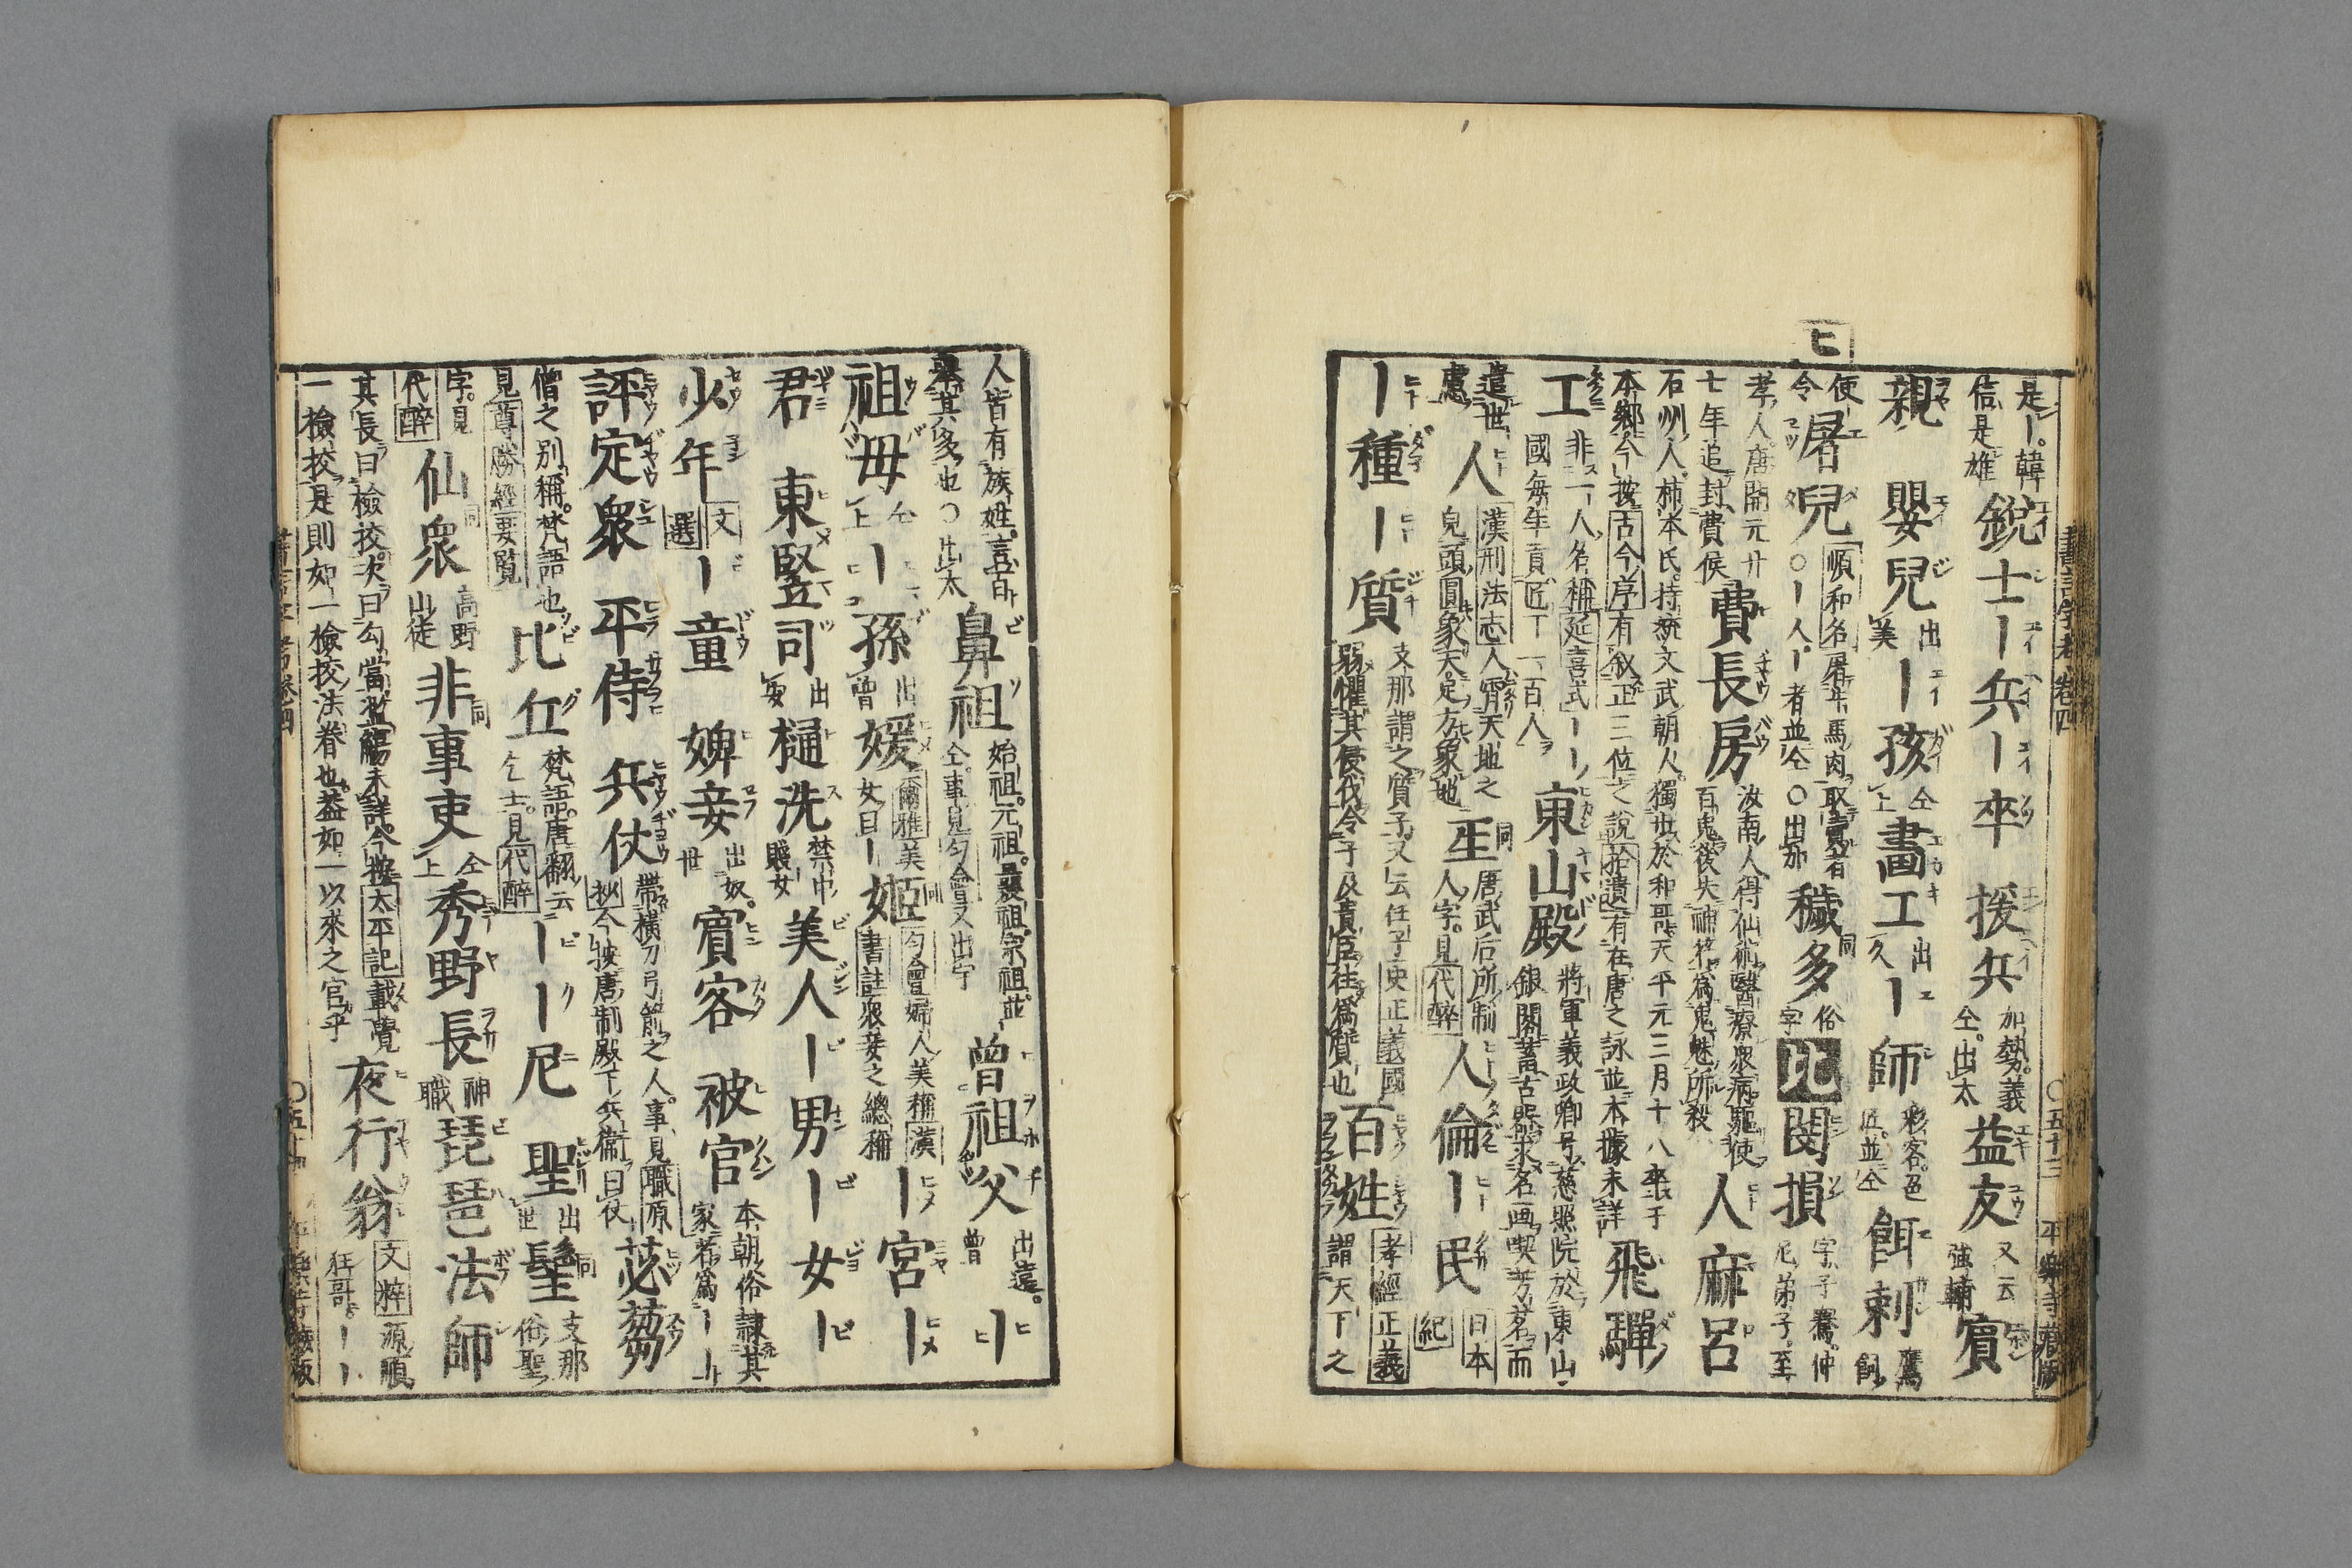 ヒ
書言字考 卷四 〇五十三 平樂寺藏版
是ー。韓
信是雄
鋭士ー兵ー卒 援兵
加勢。義
仝。出太
益友
又云
強輔
賓
親 嬰兒
出
美
ー孩
仝
上
畫工
出
久
ー師
彩客。色
匠。並仝
餌刺
鷹
飼
使ー
令
屠兒
順和名屠牛馬肉取賣者
〇ー人ー者並仝〇出加
穢多
俗
字
比
閔損
字、子騫。仲
尼弟子。至
孝人。唐開元廿
七年追封費侯
費長房
汝南人得仙術醫療衆病驅使
百鬼後失神符為鬼魅所殺
人麻呂
石州人。柿本氏。持統文武朝人。獨歩於和哥天平元三月十八卒于
本郷今按古今序有叙正三位之說拾遺有在唐之詠並本據未詳
飛騨
工
非一人名稱延喜式ーー
國每年貢匠丁一百人
東山殿
將軍義政卿号慈照院於東山
銀閣蓄古器求名画喫芳茗而
遣世
慮
人
漢刑法志人宵天地之
皃頭圓象天足方象地
同
唐武后所制
人字。見代醉
人倫ー民
日本
紀
ー種ー質
支那謂之質子又云任子史正義國
弱懼其侵伐令子及貴臣往為質也
百姓
孝經正義
謂天下之
人皆有族姓。言百
舉其多也〇出太
鼻祖
始祖。元祖。曩祖。宗祖。並
仝。事見匀會又出宇
曾祖父
出遠。
曾
ー
祖母
仝
上
ー孫
出
曾
媛
爾雅美
女曰ー
姬
匀會婦人美稱漢
書註衆妾之總稱
ー宮ー
君 東豎司
出
安
樋洗
禁中
賤女
美人ー男ー女ー
少年
文
選
ー童 婢妾
出奴。
世
賓客 被官
本朝俗隷其
家者爲ーー
評定衆 平侍 兵仗
帶橫刀弓箭之人。事見職原
抄今按唐制殿下兵衞曰仗
苾蒭
僧之別稱。梵語也
見尊勝經要覧
比丘
梵語。唐翻云
乞士。見代醉
ーーー尼 聖
出
世
同
支那
俗聖
字。見
代醉
仙衆
高野
山徒
非事吏
仝
上
秀野長
神
職
琵琶法師
其長曰檢挍。次曰勾當未詳。今按太平記載覺
一檢挍是則如一檢挍法眷也。蓋如一以來之官乎
夜行翁
文粹源順
狂哥。ーー
書言字考 卷四